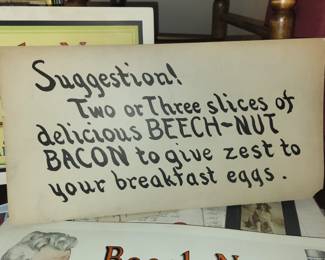 Suggestion!
Two or Three slices of
delicious BEECH-NUT
BACON to give zest to
your breakfast eggs.